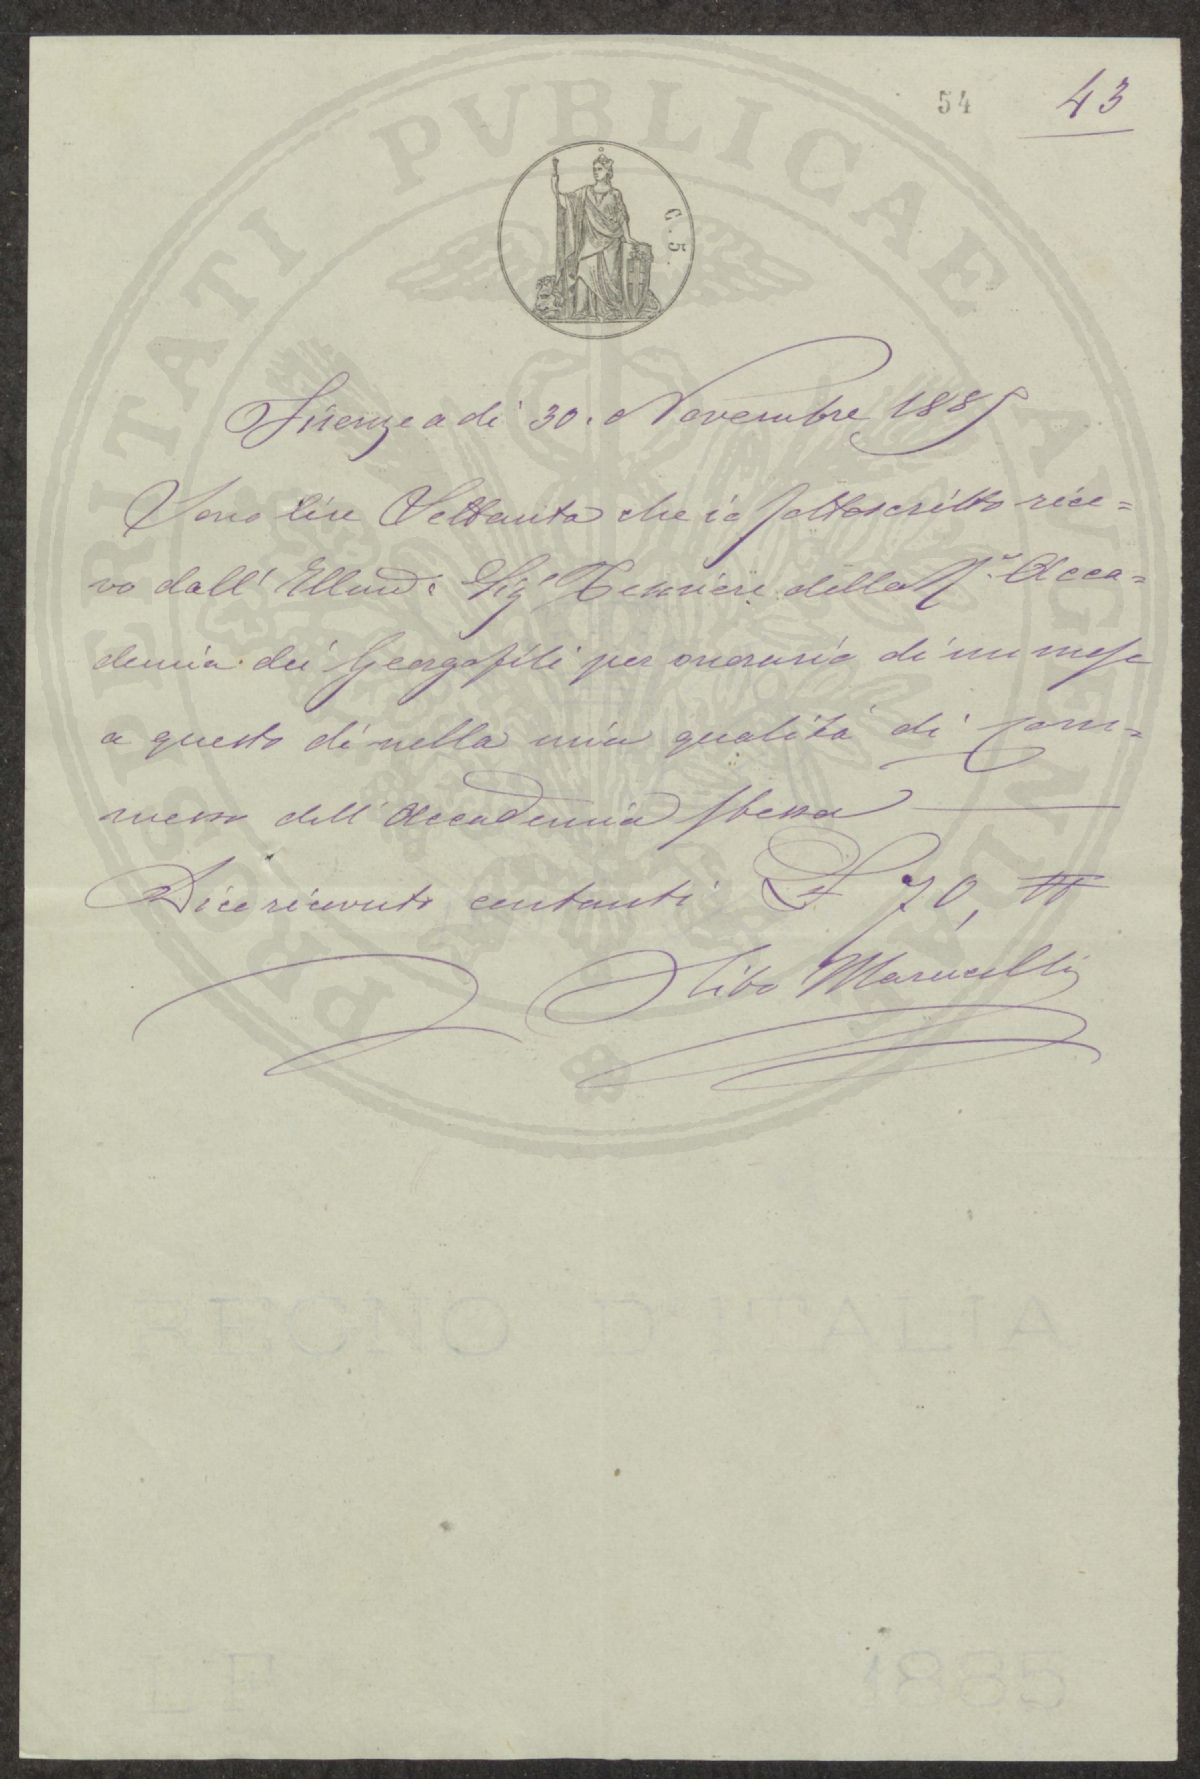 54 43
PROSPERITATI PVBLICAE AVGENDAE
C. 5.
Firenze a dì 30. Novembre 1885
Sono lire Settanta che io sottoscritto rice=
vo dall' Sig.r Tesoriere della R.a Acca=
demia dei Georgofili per onorario di un mese
a questo dì nella mia qualità di Com=
messo dell' Accademia stessa
Dico ricevuto contanti £ 70,
Marucelli
REGNO D'ITALIA
1885